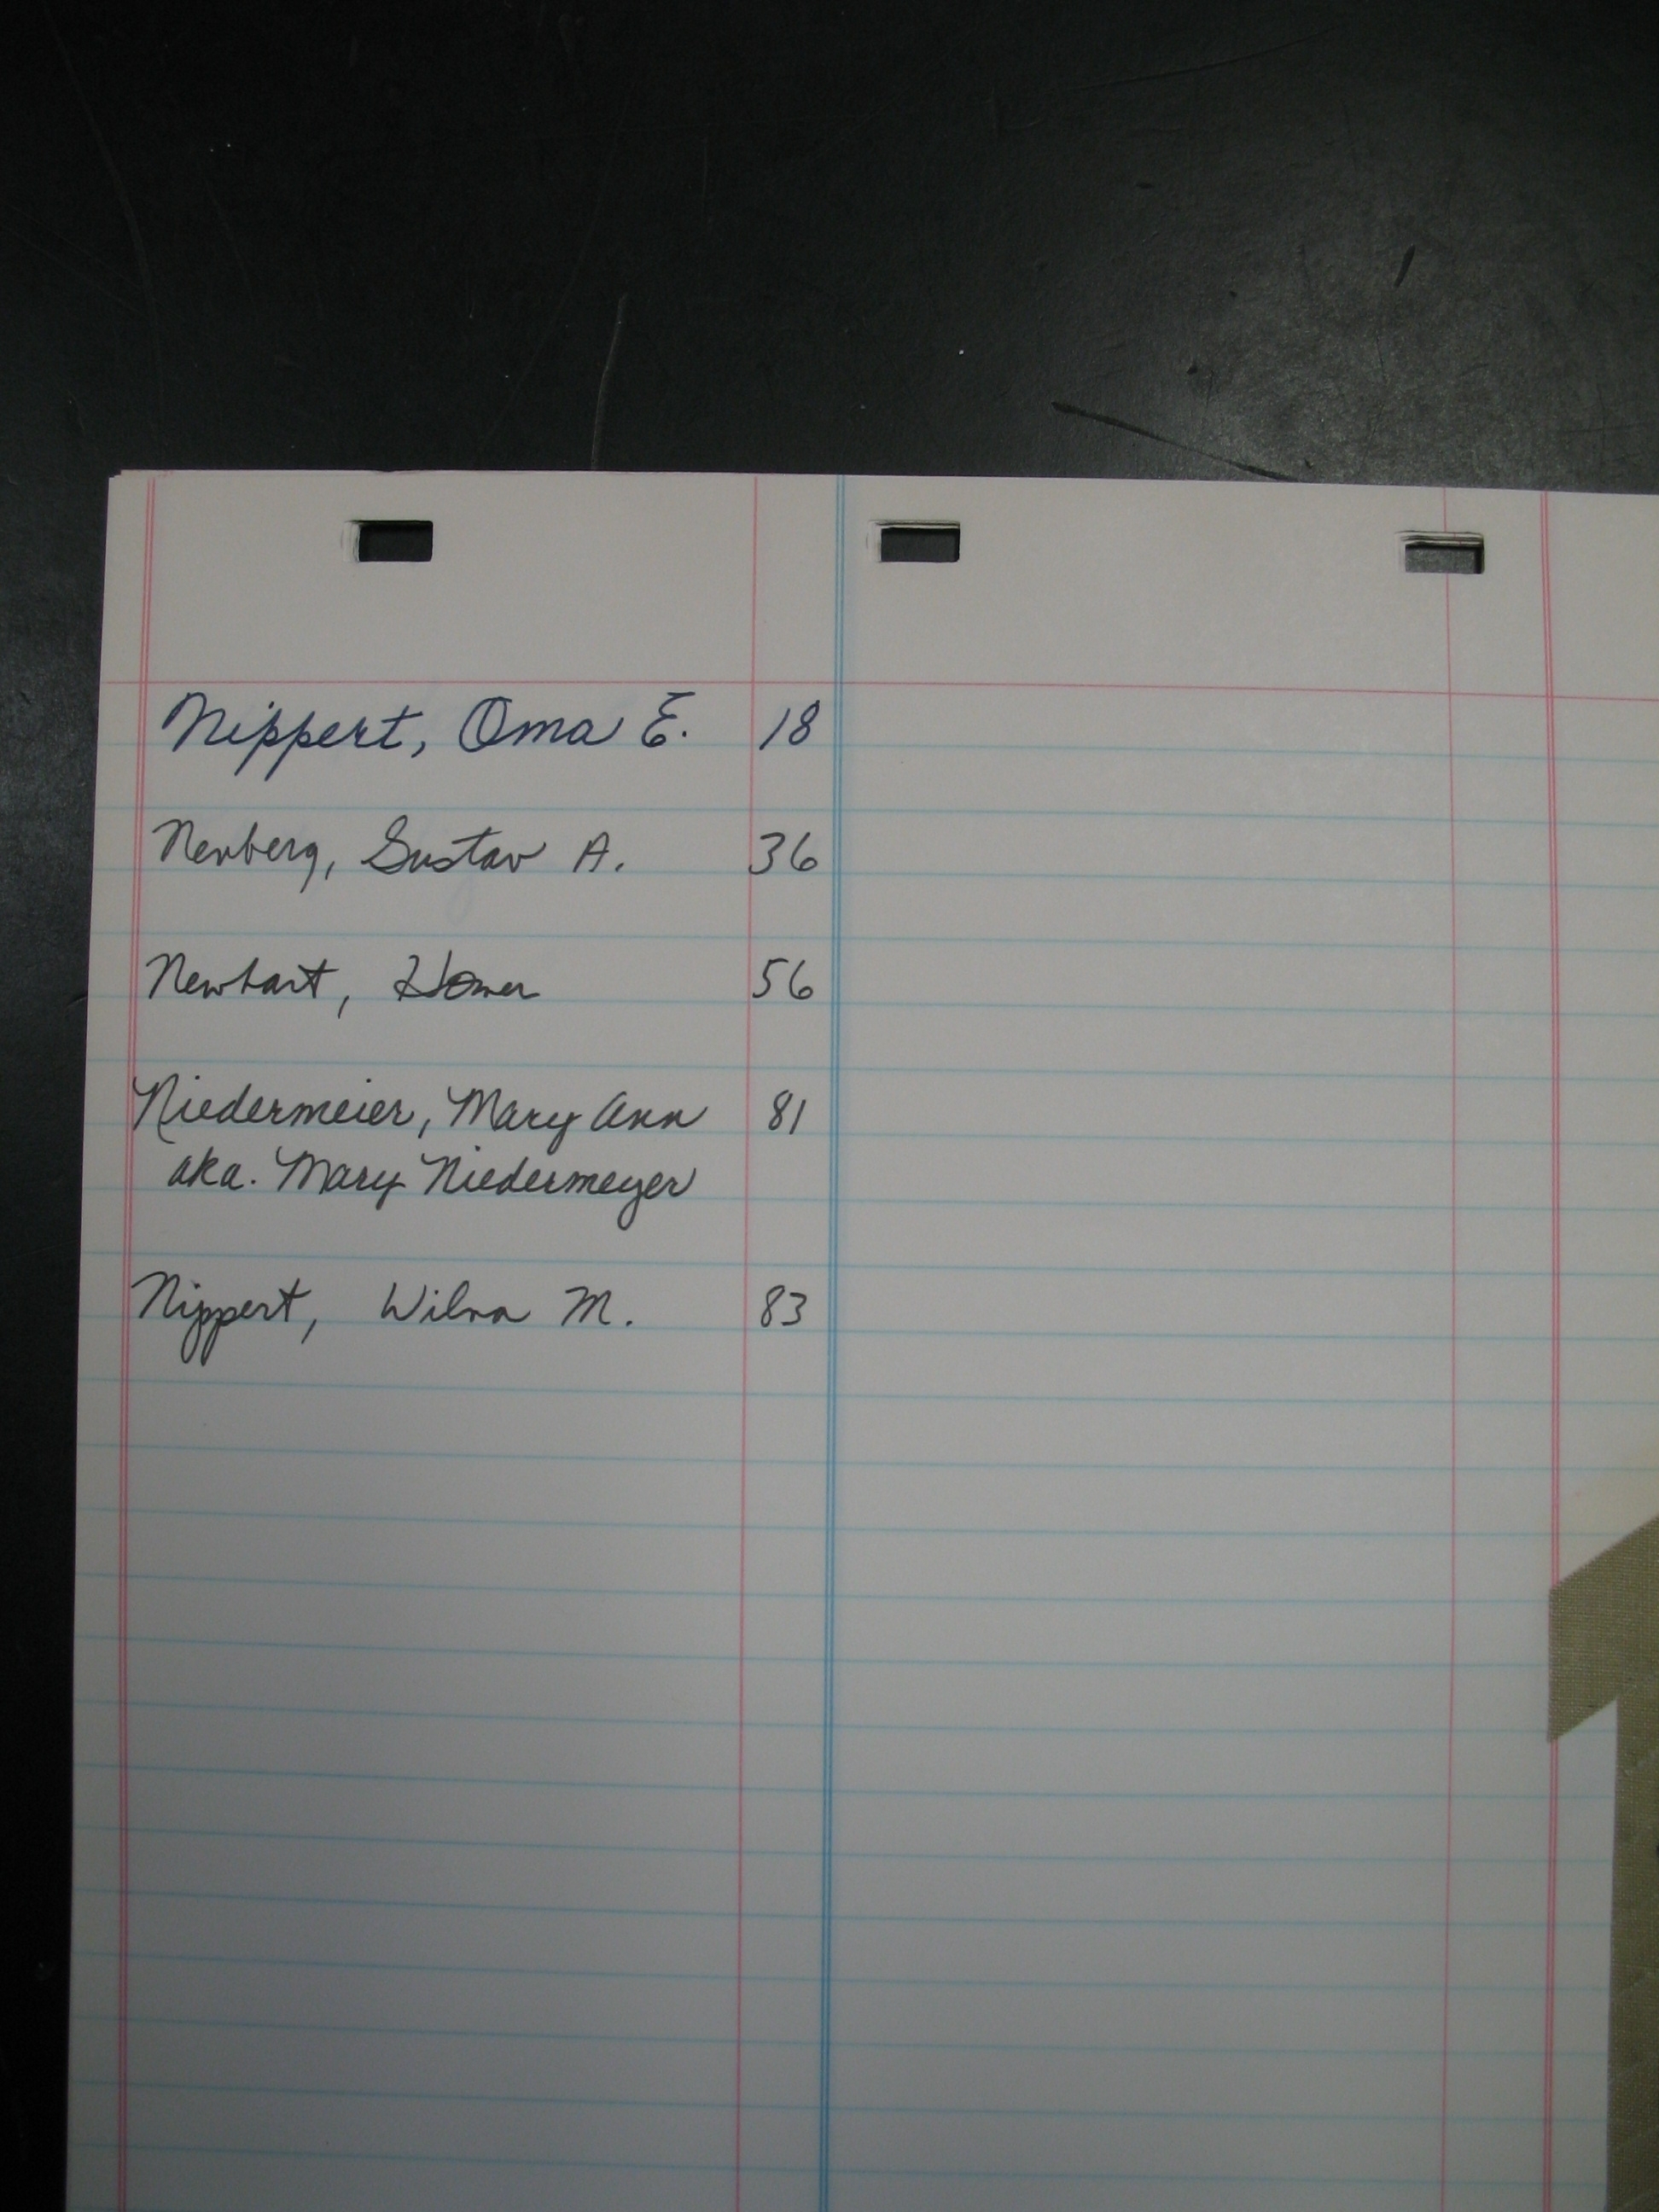 Nippert, Oma E. 18
Newberg, Gustav A. 36
Newhart, Homer 56
Niedermeier, Mary Ann 81
aka. Mary Niedermeyer
Nippert, Wilma M. 83